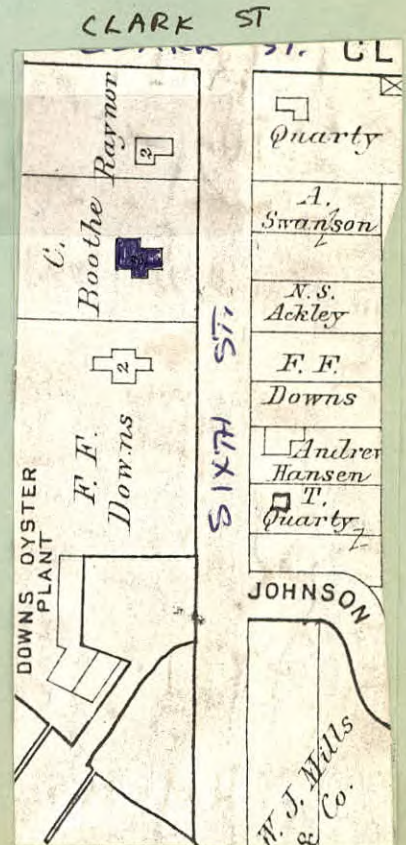 CLARK ST
CLARK ST. CL
Raynor
2
C.
Boothe
2
F. F.
Downs
DOWNS OYSTER
PLANT
SIXTH ST.
Quarty
A.
Swanson
2
N. S.
Ackley
F. F.
Downs
Andrew
Hansen
T.
Quarty
2
JOHNSON
W. J. Mills
& Co.